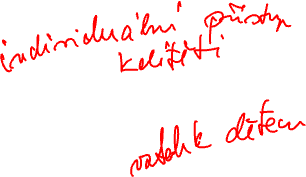 individuální přístup
k dítěti
vztah k dětem